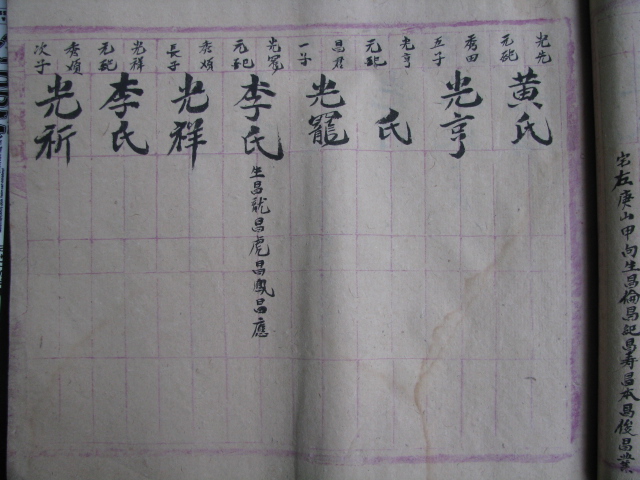 宅左庚山甲向生昌倫昌紀昌寿昌本昌俊昌業
光先
元配
黄氏
秀田
五子
光亨
光亨
元配
氏
昌君
一子
光寵
光寵
元配
李氏
生昌龍昌虎昌鳳昌應
秀煩
長子
光祥
光祥
元配
李氏
秀煩
次子
光祈